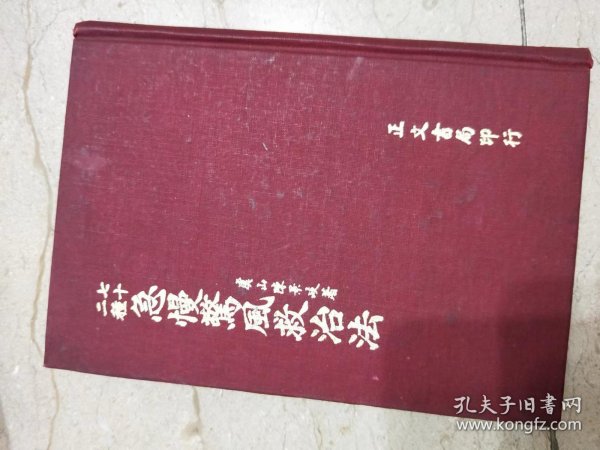 七十二種急慢驚風救治法
虞山陳景岐著
正文書局印行
孔夫子旧書网
www.kongfz.com